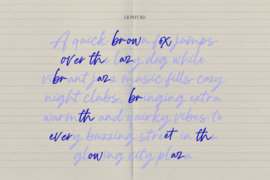 A quick brown fox jumps
over the lazy dog while
vibrant jazz music fills cozy
night clubs, bringing extra
warmth and quirky vibes to
every buzzing street in the
glowing city plaza